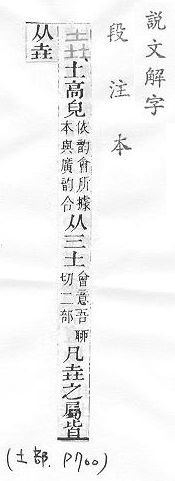 説文解字
段注本
垚 土高皃 依韵會所據本與廣韵合 从三土 會意吾聊切二部 凡垚之屬皆
从垚
(土部. P700)